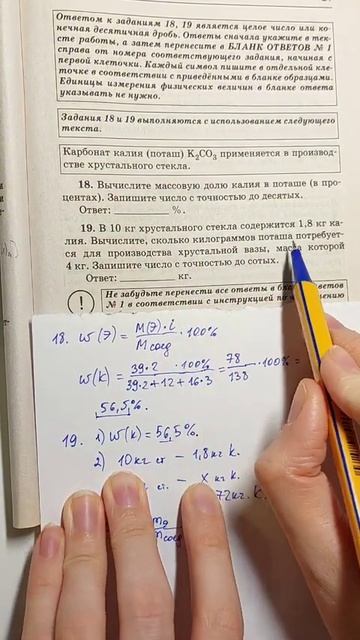 Ответом к заданиям 18, 19 является целое число или ко-
нечная десятичная дробь. Ответы сначала укажите в тек-
сте работы, а затем перенесите в БЛАНК ОТВЕТОВ № 1
справа от номера соответствующего задания, начиная с
первой клеточки. Каждый символ пишите в отдельной кле-
точке в соответствии с приведёнными в бланке образцами.
Единицы измерения физических величин в бланке ответа
указывать не нужно.
Задания 18 и 19 выполняются с использованием следующего
текста.
Карбонат калия (поташ) K₂CO₃ применяется в производ-
стве хрустального стекла.
18. Вычислите массовую долю калия в поташе (в про-
центах). Запишите число с точностью до десятых.
Ответ: ________ %.
19. В 10 кг хрустального стекла содержится 1,8 кг ка-
лия. Вычислите, сколько килограммов поташа потребует-
ся для производства хрустальной вазы, масса которой
4 кг. Запишите число с точностью до сотых.
Ответ: ________ кг.
! Не забудьте перенести все ответы в бланк ответов
№ 1 в соответствии с инструкцией по
18. W(Э) = M(Э)·i / Mсоед · 100%
W(K) = 39·2 · 100% / 39·2+12+16·3 = 78 / 138 · 100% =
56,5%.
19. 1) W(K) = 56,5%.
2) 10кг ст – 1,8кг K.
ст. – x кг K.
72кг. K.
mэ / mсоед